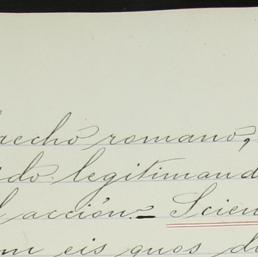 recho romano,
ido legitimand
l acción.— Scien
om eis quos d